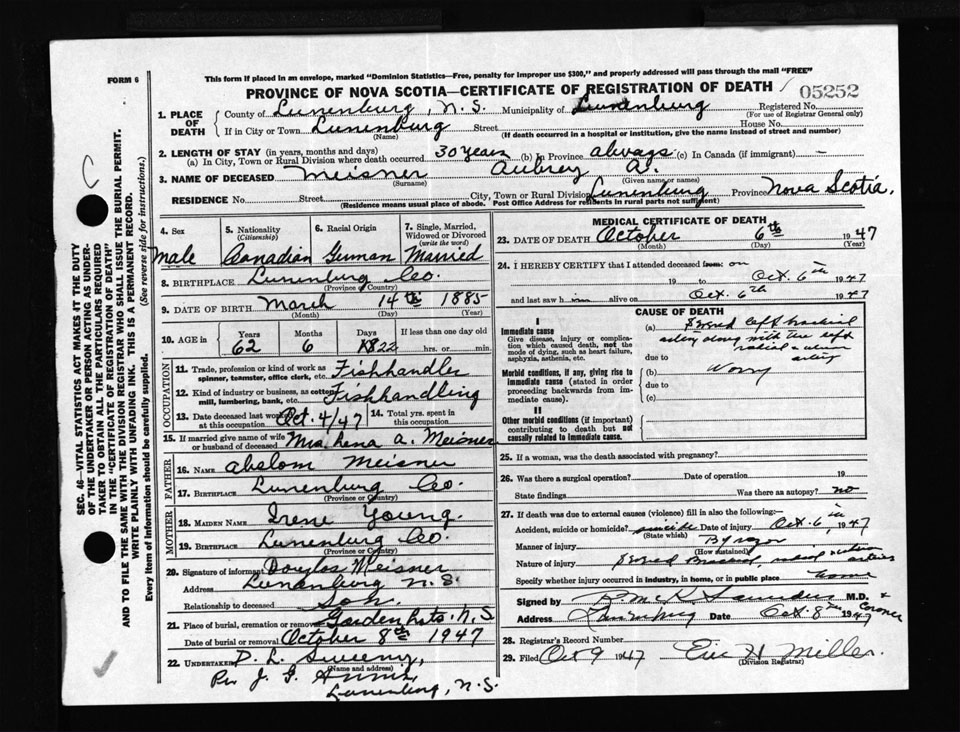 FORM 6
This form if placed in an envelope, marked "Dominion Statistics—Free, penalty for improper use $300," and properly addressed will pass through the mail "FREE"
PROVINCE OF NOVA SCOTIA—CERTIFICATE OF REGISTRATION OF DEATH
05252
1. PLACE OF DEATH
County of Lunenburg, N.S. Municipality of Lunenburg Registered No.
(For use of Registrar General only)
If in City or Town Lunenburg Street House No.
(Name) (If death occurred in a hospital or institution, give the name instead of street and number)
2. LENGTH OF STAY (in years, months and days)
(a) In City, Town or Rural Division where death occurred 30 years (b) In Province always (c) In Canada (if immigrant) —
3. NAME OF DECEASED Meisner Aubrey A.
(Surname) (Given name or names)
RESIDENCE No. Street City, Town or Rural Division Lunenburg Province Nova Scotia.
(Residence means usual place of abode. Post Office Address for residents in rural parts not sufficient)
4. Sex
Male
5. Nationality
(Citizenship)
Canadian
6. Racial Origin
German
7. Single, Married, Widowed or Divorced
(write the word)
Married
8. BIRTHPLACE Lunenburg Co.
(Province or Country)
9. DATE OF BIRTH March 14th 1885
(Month) (Day) (Year)
10. AGE in Years Months Days If less than one day old
62 6 22 hrs. or min.
OCCUPATION
11. Trade, profession or kind of work as spinner, teamster, office clerk, etc. Fishhandler
12. Kind of industry or business, as cotton mill, lumbering, bank, etc. Fishhandling
13. Date deceased last worked at this occupation Oct. 4/47
14. Total yrs. spent in this occupation
15. If married give name of wife or husband of deceased Mrs Lena A. Meisner
FATHER
16. NAME Abslom Meisner
17. BIRTHPLACE Lunenburg Co.
(Province or Country)
MOTHER
18. MAIDEN NAME Irene Young.
19. BIRTHPLACE Lunenburg Co.
(Province or Country)
20. Signature of informant Douglas Meisner
Address Lunenburg N.S.
Relationship to deceased Son.
21. Place of burial, cremation or removal Garden Lots. N.S
Date of burial or removal October 8th 1947
22. UNDERTAKER D. L. Sweeny,
(Name and address)
Per J. G.
Lunenburg, N.S.
MEDICAL CERTIFICATE OF DEATH
23. DATE OF DEATH October 6th 1947
(Month) (Day) (Year)
24. I HEREBY CERTIFY that I attended deceased from: on
19 to Oct. 6th 1947
and last saw him alive on Oct. 6th 1947
CAUSE OF DEATH
I
Immediate cause
Give disease, injury or complication which caused death, not the mode of dying, such as heart failure, asphyxia, asthenia, etc.
(a) Severed left brachial
artery along with the left
radial & ulnar
artery
due to
Morbid conditions, if any, giving rise to immediate cause (stated in order proceeding backwards from immediate cause).
(b) Worry
due to
(c)
II
Other morbid conditions (if important) contributing to death but not causally related to immediate cause.
25. If a woman, was the death associated with pregnancy?
26. Was there a surgical operation? Date of operation 19
State findings Was there an autopsy? no
27. If death was due to external causes (violence) fill in also the following:—
Accident, suicide or homicide? suicide Date of injury Oct. 6 1947
(State which)
Manner of injury By razor
(How sustained)
Nature of injury Severed Brachial, radial & ulnar arteries
Specify whether injury occurred in industry, in home, or in public place home
Signed by R. McK Saunders M.D. & Coroner
Address Lunenburg Date Oct. 8th 1947
28. Registrar's Record Number
29. Filed Oct 9 1947 Eric H Miller.
(Division Registrar)
SEC. 46—VITAL STATISTICS ACT MAKES IT THE DUTY
OF THE UNDERTAKER OR PERSON ACTING AS UNDER-
TAKER TO OBTAIN ALL THE PARTICULARS REQUIRED
IN THE "CERTIFICATE OF REGISTRATION OF DEATH"
AND TO FILE THE SAME WITH THE DIVISION REGISTRAR WHO SHALL ISSUE THE BURIAL PERMIT.
WRITE PLAINLY WITH UNFADING INK. THIS IS A PERMANENT RECORD.
Every item of information should be carefully supplied. (See reverse side for instructions.)